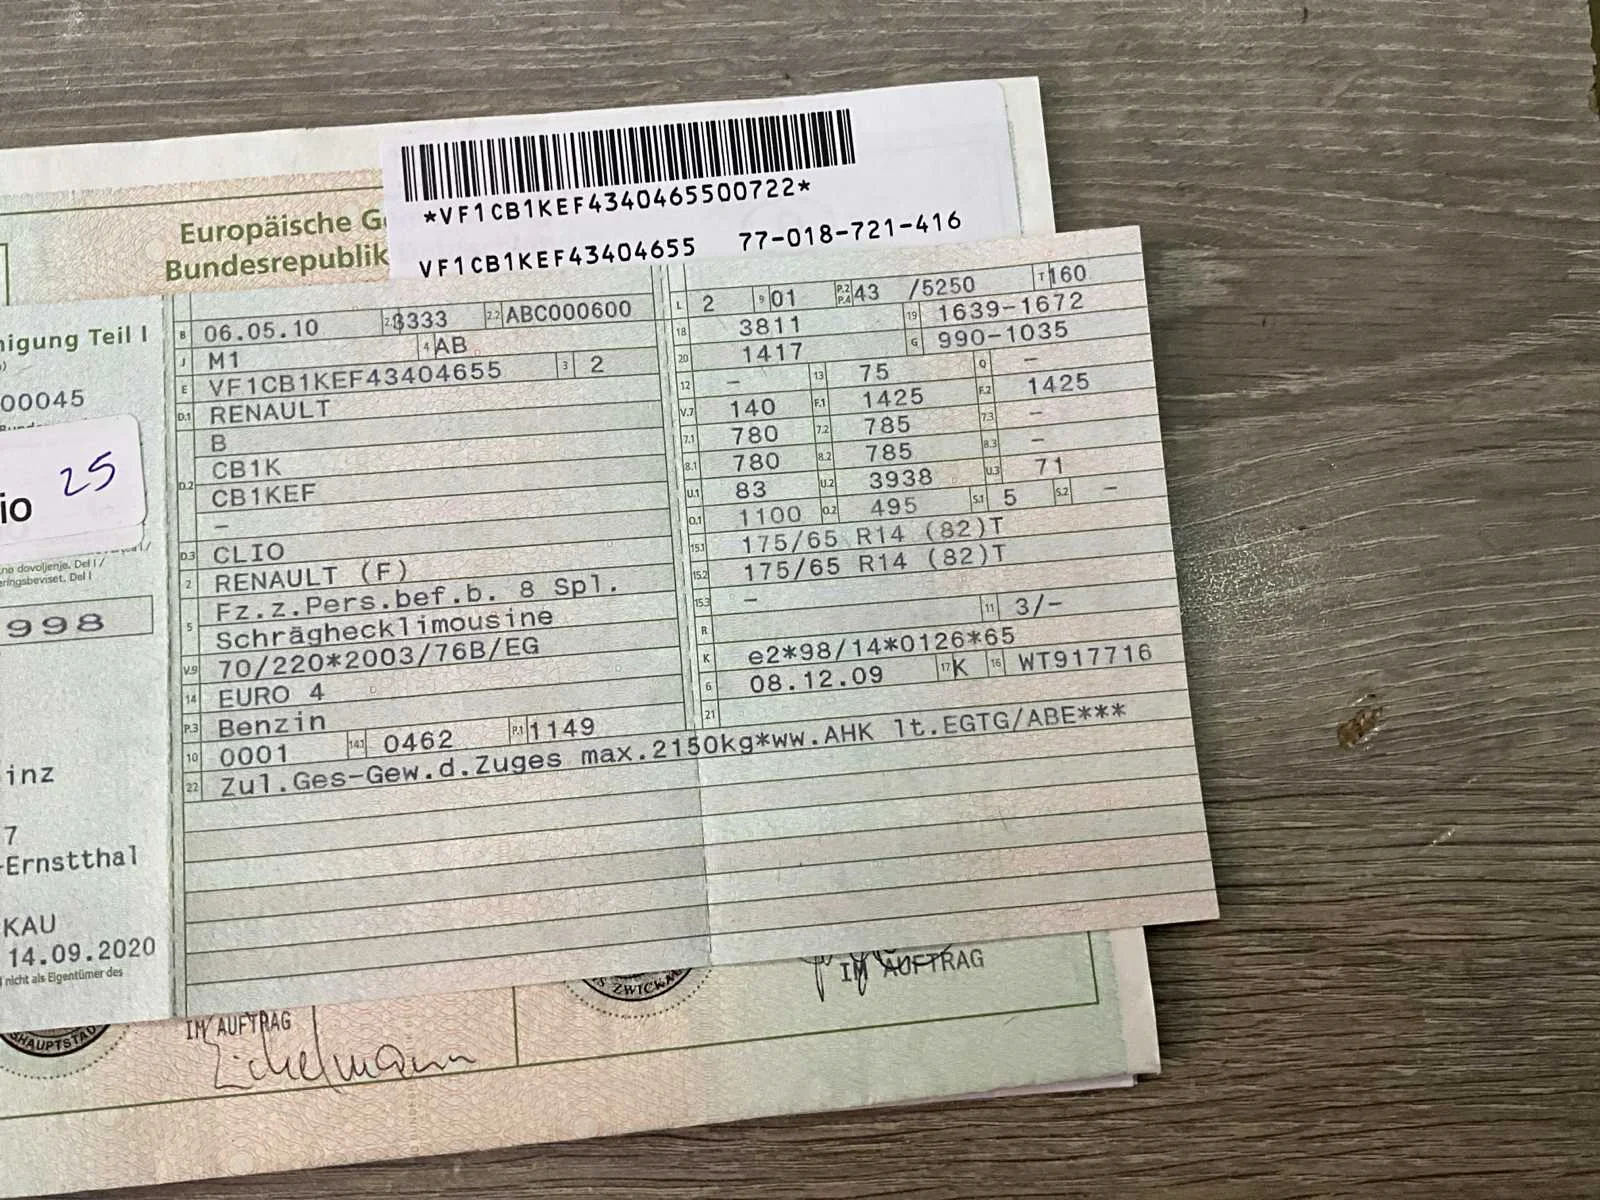 *VF1CB1KEF4340465500722*
VF1CB1KEF43404655 77-018-721-416
Europäische
Bundesrepublik
nigung Teil I
00045
25
io
no dovoljenje. Del I /
eringsbeviset. Del I
998
inz
7
-Ernstthal
KAU
14.09.2020
nicht als Eigentümer des
B 06.05.10 3333 2.2 ABC000600
J M1 4 AB
E VF1CB1KEF43404655 3 2
D.1 RENAULT
B
D.2 CB1K
CB1KEF
–
D.3 CLIO
2 RENAULT (F)
5 Fz.z.Pers.bef.b. 8 Spl.
Schräghecklimousine
V.9 70/220*2003/76B/EG
14 EURO 4
P.3 Benzin
10 0001 14.1 0462 P.1 1149
22 Zul.Ges-Gew.d.Zuges max.2150kg*ww.AHK lt.EGTG/ABE***
L 2 9 01 P.2 P.4 43 /5250 T 160
18 3811 19 1639-1672
20 1417 G 990-1035
12 – 13 75 Q –
V.7 140 F.1 1425 F.2 1425
7.1 780 7.2 785 7.3 –
8.1 780 8.2 785 8.3 –
U.1 83 U.2 3938 U.3 71
O.1 1100 O.2 495 S.1 5 S.2 –
15.1 175/65 R14 (82)T
15.2 175/65 R14 (82)T
15.3 –
R 11 3/–
K e2*98/14*0126*65
6 08.12.09 17 K 16 WT917716
21
HAUPTSTAD
IM AUFTRAG
Eichelmann
ZWICKA
IM AUFTRAG